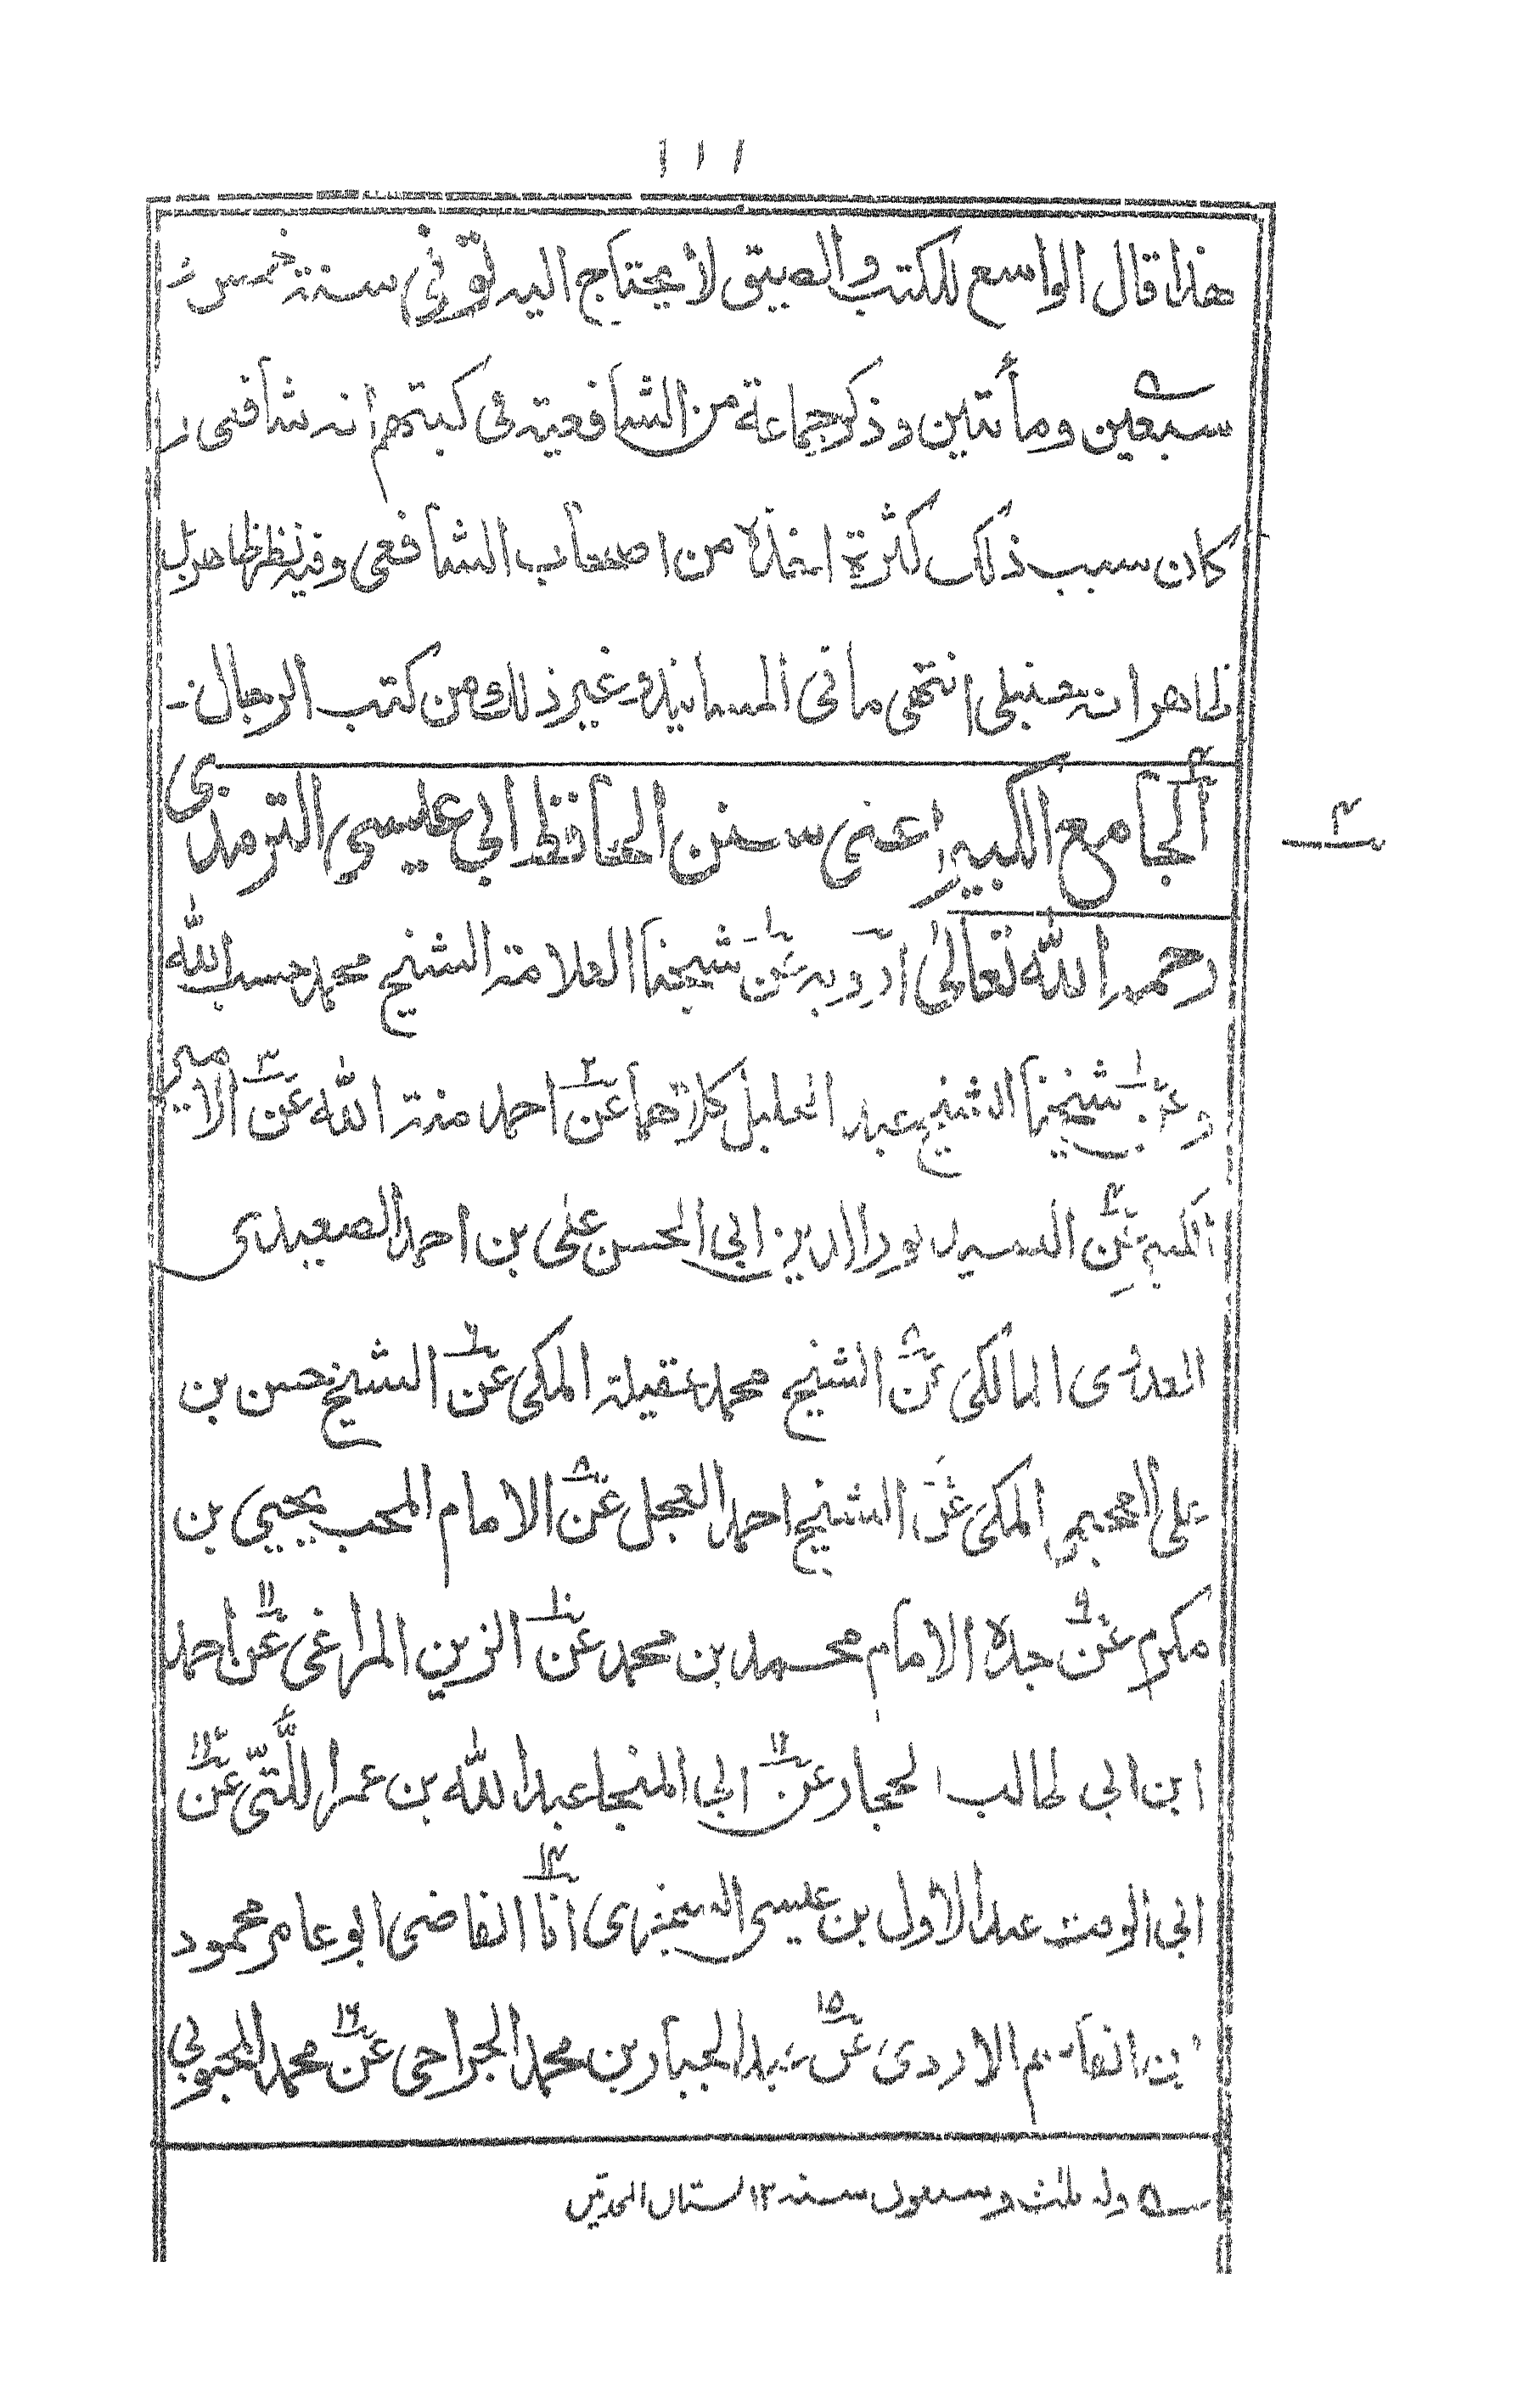 ١١١
هذا قال الواسع للكتب والضيق لا يحتاج اليه توفى سنة خمس و
سبعين ومأتين وذكر جماعة من الشافعية فى كتبهم انه شافعى و
كان سبب ذلك كثرة اخذه من اصحاب الشافعى وفيه نظر ظاهر بل
ظاهر انه حنبلى انتهى ما فى المسانيد وغير ذلك من كتب الرجال -
٣ الجامع الكبير اعنى سنن الحافظ ابي عيسى الترمذي
رحمه الله تعالى ارويه عن شيخنا العلامة الشيخ محمد حسب الله
وعن شيخنا الشيخ عبد الجليل كلاهما عن احمد منة الله عن الامير
الكبير عن السيد نور الدين ابي الحسن على بن احمد الصعيدى
العدوى المالكى عن الشيخ محمد عقيلة المكى عن الشيخ حسن بن
على العجيمى المكى عن الشيخ احمد العجل عن الامام المحب يحيى بن
مكرم عن جده الامام محمد بن محمد عن الزين المراغى عن احمد
ابن ابى طالب الحجار عن ابى المنجا عبد الله بن عمر اللتى عن
ابى الوقت عبد الاول بن عيسى السجزى انا القاضى ابو عامر محمود
بن القاسم الازدى عن عبد الجبار بن محمد الجراحى عن محمد المحبوبى
وله ثلث وسبعون سنه ١٢ بستان المحدثين